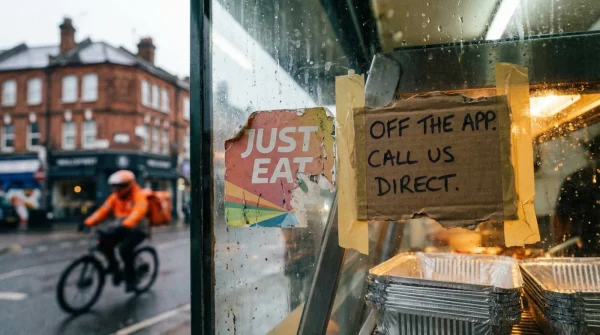 JUST
EAT
OFF THE APP.
CALL US
DIRECT.